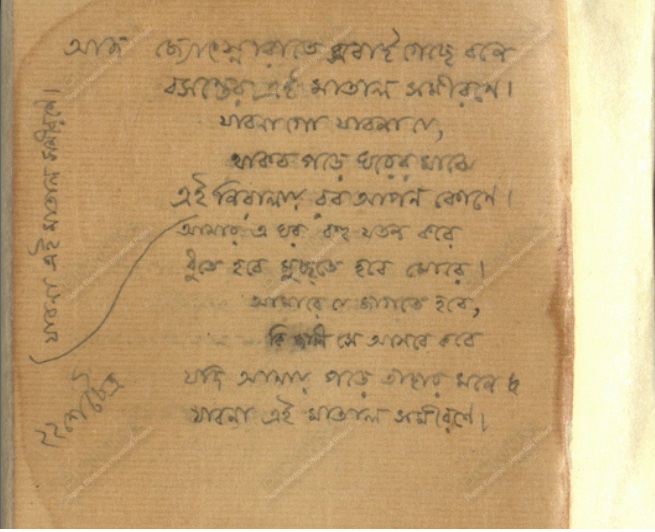 আজ জ্যোৎস্নারাতে সবাই গেছে বনে
বসন্তের এই মাতাল সমীরণে।
যাবনা গো যাবনা যে,
থাকব পড়ে ঘরের মাঝে
এই নিরালায় রব আপন কোণে।
আমার এ ঘর বহু যতন করে
ধুতে হবে মুছতে হবে মোরে।
আমারে যে জাগতে হবে,
কি জানি সে আসবে কবে
যদি আমায় পড়ে তাহার মনে
যাবনা এই মাতাল সমীরণে।
যাবনা এই মাতাল সমীরণে।
২২শে চৈত্র